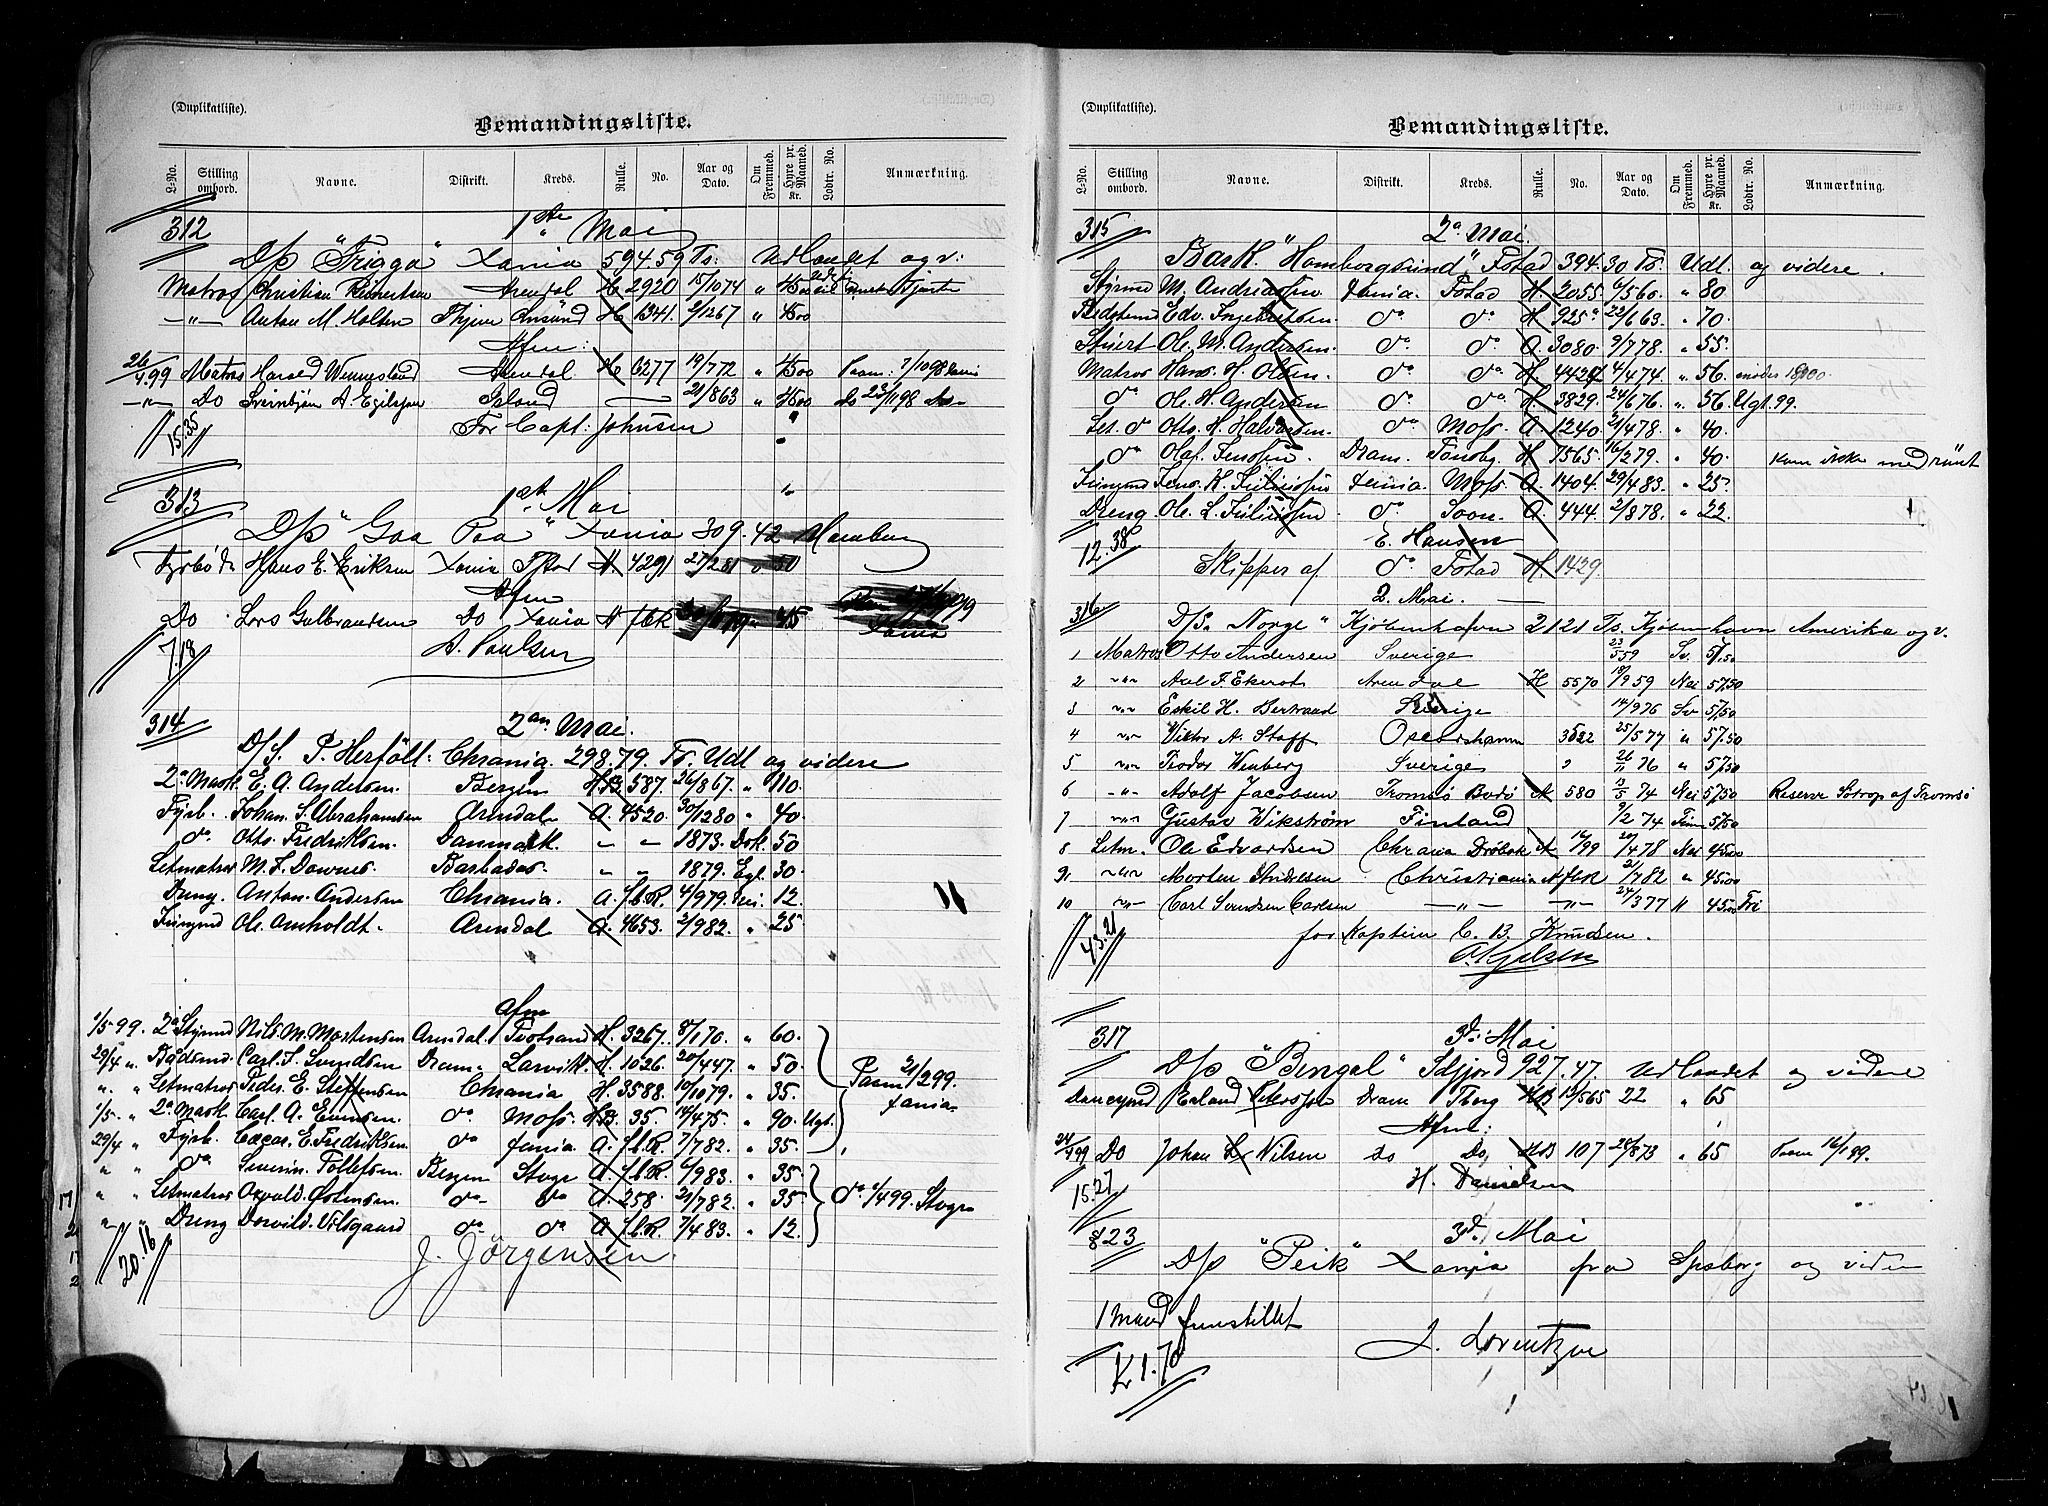 (Duplikatliste).
Bemandingsliste.
L-No. Stilling ombord. Navne. Distrikt. Kreds. Rulle. No. Aar og Dato. Om Fremmed. Hyre pr. Maaned. Kr. Lodtr. No. Anmærkning.
312 1ste Mai
D/s "Frigga" Xania 594.59 Ts. Udlandet og v:
Matros Christian Reinertsen Arendal H 2920 15/1074 " 4500
—"— Anton M. Holten H 1341 2/1267 " 4500
Afm:
26/4 99 Matros Harald Wennesland Arendal H 6277 19/772 " 4500 Paam: 7/1098
—"— Do Sveinbjørn A. Egilsson Island — 21/863 " 4500 do 23/1198
15.35 For Capt: Johnsen
313 1ste Mai
D/s "Gaa Paa" Xania 309.42 Hamburg
Fyrbød. Hans E. Eriksen Xania H. 4291 27/281 50
Afm
Do Lars Gulbrandsen Do Xania H fbR 45 Xania
7.18 A. Paulsen
314 2an Mai.
D/S. P. Herföll: Chrania. 298.79. Ts. Udl og videre
2a Mask E. A. Andersen. Bergen H.B. 587. 26/867. " 110.
Fyrb. Johan S. Abrahamsen Arendal A. 4520 30/1280 " 40.
do. Otto Fredriksen. Danmark. " " 1873. Dsk. 50
Letmatros M. F. Downes. Barbados. " " 1879. Egl. 30.
Dreng. Anton. Andersen Chrania. A. fb.R. 4/979. 12.
Jungmd Ole. Arnholdt. Arendal A. 4653. 2/982. " 25
Afm
1/5 99. 2a Styrmd Nils. M. Mortensen Arendal. Tvetrand H. 3267. 8/170. " 60.
29/4 " Bådsmd. Carl. F. Svendsen Dram. Larvik. H. 1026. 20/447. " 50.
" " Letmatros Peder. E. Steffensen Chrania H. 3588. 10/1079. " 35. Paam 21/299. Xania
1/5. " 2a Mask Carl. A. Evensen. do. Moss. H.B. 35. 14/475. " 90. Ugt.
29/4 " Fyrb. Oscar. E. Fredriksen. do Xania A. fb.R. 7/782. " 35.
" " do Severin. Tollefsen. Bergen Stvgr A. fb.R. 6/983. " 35
" " Letmatros Osvald. Osmundsen. do do A. 258. 21/782. " 35 do 1/499. Stvgr
" " Dreng do do A. fb.R. 7/483. " 12.
20.16 J. Jörgensen.
(Duplikatliste).
Bemandingsliste.
L-No. Stilling ombord. Navne. Distrikt. Kreds. Rulle. No. Aar og Dato. Om Fremmed. Hyre pr. Maaned. Kr. Lodtr. No. Anmærkning.
315 2a Mai.
Bark. "Homborgsund" Fstad 394.30 Ts. Udl. og videre.
Styrmd M. Andreassen Xania. Fstad H. 2055. 6/560. " 80
Bådsmd Edv. Ingebretsen. do do H. 925. 22/663. " 70.
Stuert Ole. M. Andersen. do. do A. 3080. 9/778. " 55.
Matros Hans. H. Olsen. do do. H. 4424. 4/474. " 56. møder 1900.
do Ole. H. Andersen do. do. H. 3829. 24/676. " 56. Ugt. 99.
Let. do Otto. H. Halvorsen. do Moss. A. 1240. 21/478. " 40.
do Olaf. Jensen. Dram. Tønsbg. H. 1565. 16/279. " 40. Kom ikke med
Jungmd Jens. K. Juliussen Xania. Moss. A. 1404. 29/483. " 25.
Dreng. Ole. L. Juliussen do. Soon. A. 444. 2/878. " 22.
12.38 E. Hansen
Skipper af do. Fstad H. 1429.
316 2. Mai.
D/S. "Norge" Kjøbenhavn 2121 Ts. Kjøbenhavn Amerika og v.
1 Matros Otto Andersen Sverige 23/5 59 Sv. 57.50
2 "" Axel F. Ekerot Arendal H 5570 18/9 59 Nei 57.50
3 "" Eskil H. Bertrand Sverige 14/976 Sv 57.50
4 "" Viktor A. Staff Oscarshamn 3522 25/577 " 57.50
5 "" Teodor Wenberg Sverige " 26/11 76 " 57.50
6 "" Adolf Jacobsen Tromsö Bodö A 580 13/5 74 Nei 57.50 Reserve Sötrop af Tromsö
7 "" Gustav Wikström Finland 9/2 74 Finn 57.50
8 Letm. Ole Edvardsen Chrania Dröbak A 16/99 20/478 Nei 45.00
9 "" Morten Andresen Christiania A fbR 21/782 " 45.00
10 "" Carl Svendsen Carlsen —"— —"— 24/377 " 45.00 Fri
43.21 for Kaptein C. B. Knudsen.
317 3die Mai
D/s "Bengal" Sdfjord 927.47. Udlandet og videre
Erland Petersson Dram Tbrg HB 13/565 22 " 65
Afm:
24/4 99 Do Johan L. Nilsen do Do HB 107 28/873 " 65 Paam 16/189.
15.27 H. Danielsen
823 3d. Mai
D/s "Peik" Xania fra Spsborg og videre
1 mand fremstillet
Kr 1.70 J. Lorentzen